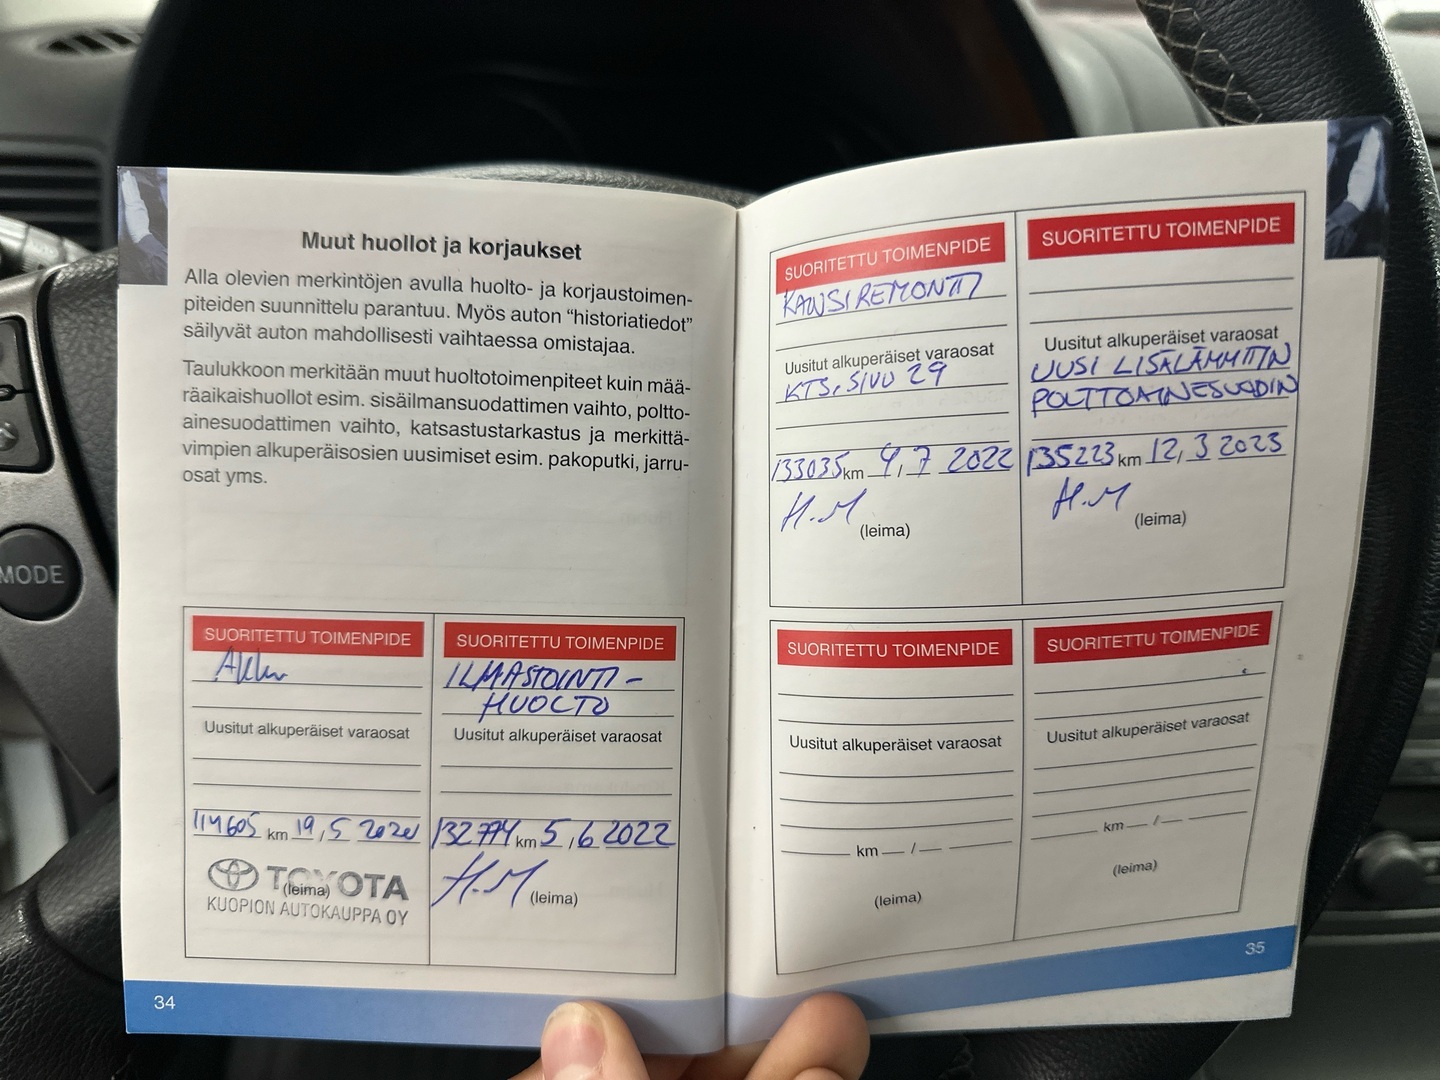 MODE
Muut huollot ja korjaukset
Alla olevien merkintöjen avulla huolto- ja korjaustoimen-
piteiden suunnittelu parantuu. Myös auton "historiatiedot"
säilyvät auton mahdollisesti vaihtaessa omistajaa.
Taulukkoon merkitään muut huoltotoimenpiteet kuin mää-
räaikaishuollot esim. sisäilmansuodattimen vaihto, poltto-
ainesuodattimen vaihto, katsastustarkastus ja merkittä-
vimpien alkuperäisosien uusimiset esim. pakoputki, jarru-
osat yms.
SUORITETTU TOIMENPIDE
Akku
Uusitut alkuperäiset varaosat
114605 km 19,5 2020
TOYOTA
(leima)
KUOPION AUTOKAUPPA OY
SUORITETTU TOIMENPIDE
ILMASTOINTI-
HUOLTO
Uusitut alkuperäiset varaosat
132774 km 5,6 2022
H.M (leima)
34
SUORITETTU TOIMENPIDE
KANSIREMONTTI
Uusitut alkuperäiset varaosat
KTS. SIVU 29
133035 km 9,7 2022
H.M
(leima)
SUORITETTU TOIMENPIDE
Uusitut alkuperäiset varaosat
UUSI LISÄLÄMMITIN
POLTTOAINESUODIN
135223 km 12,3 2023
H.M
(leima)
SUORITETTU TOIMENPIDE
Uusitut alkuperäiset varaosat
km / 
(leima)
SUORITETTU TOIMENPIDE
Uusitut alkuperäiset varaosat
km / 
(leima)
35